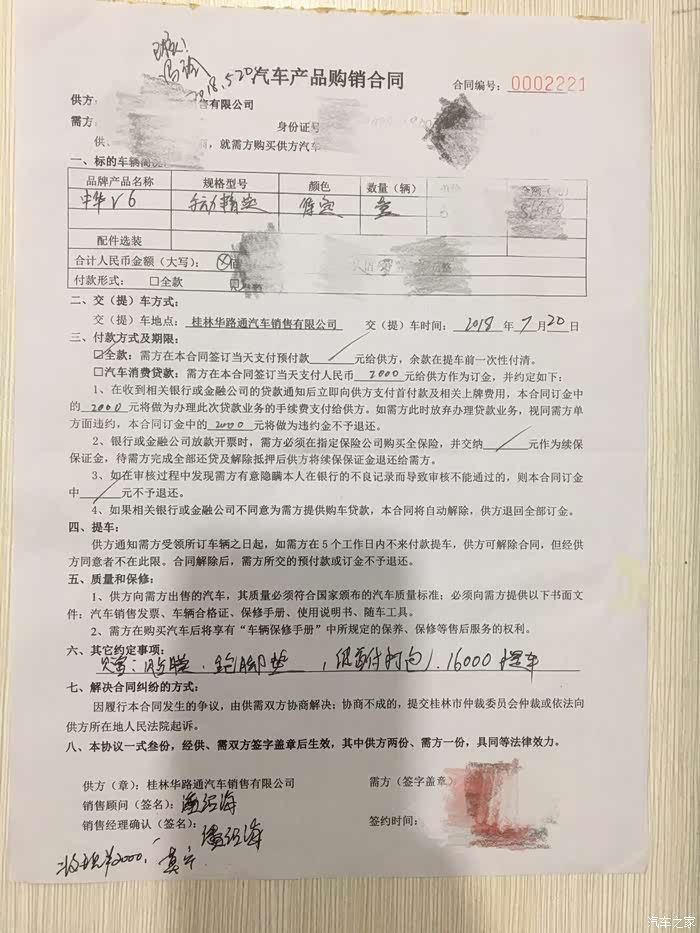 2018.5.20
汽车产品购销合同
合同编号：0002221
供方：
售有限公司
需方：
身份证号
供、
，就需方购买供方汽车
一、标的车辆
品牌产品名称 规格型号 颜色 数量（辆）
中华V6
配件选装
合计人民币金额（大写）：
付款形式：□全款
二、交（提）车方式：
交（提）车地点：桂林华路通汽车销售有限公司 交（提）车时间：2018年7月20日
三、付款方式及期限：
☑全款：需方在本合同签订当天支付预付款 元给供方，余款在提车前一次性付清。
□汽车消费贷款：需方在本合同签订当天支付人民币 2000 元给供方作为订金，并约定如下：
1、在收到相关银行或金融公司的贷款通知后立即向供方支付首付款及相关上牌费用，本合同订金中
的 2000 元将做为办理此次贷款业务的手续费支付给供方。如需方此时放弃办理贷款业务，视同需方单
方面违约，本合同订金中的 2000 元将做为违约金不予退还。
2、银行或金融公司放款开票时，需方必须在指定保险公司购买全保险，并交纳 元作为续保
保证金，待需方完成全部还贷及解除抵押后供方将续保保证金退还给需方。
3、如在审核过程中发现需方有意隐瞒本人在银行的不良记录而导致审核不能通过的，则本合同订金
中 元不予退还。
4、如果相关银行或金融公司不同意为需方提供购车贷款，本合同将自动解除，供方退回全部订金。
四、提车：
供方通知需方受领所订车辆之日起，如需方在5个工作日内不来付款提车，供方可解除合同，但经供
方同意者不在此限。合同解除后，需方所交的预付款或订金不予退还。
五、质量和保修：
1、供方向需方出售的汽车，其质量必须符合国家颁布的汽车质量标准；必须向需方提供以下书面文
件：汽车销售发票、车辆合格证、保修手册、使用说明书、随车工具。
2、需方在购买汽车后将享有“车辆保修手册”中所规定的保养、保修等售后服务的权利。
六、其它约定事项：
脚垫 16000 提车
七、解决合同纠纷的方式：
因履行本合同发生的争议，由供需双方协商解决；协商不成的，提交桂林市仲裁委员会仲裁或依法向
供方所在地人民法院起诉。
八、本协议一式叁份，经供、需双方签字盖章后生效，其中供方两份、需方一份，具同等法律效力。
供方（章）：桂林华路通汽车销售有限公司 需方（签字盖章）
销售顾问（签名）：
销售经理确认（签名）： 签约时间：
2000
汽车之家